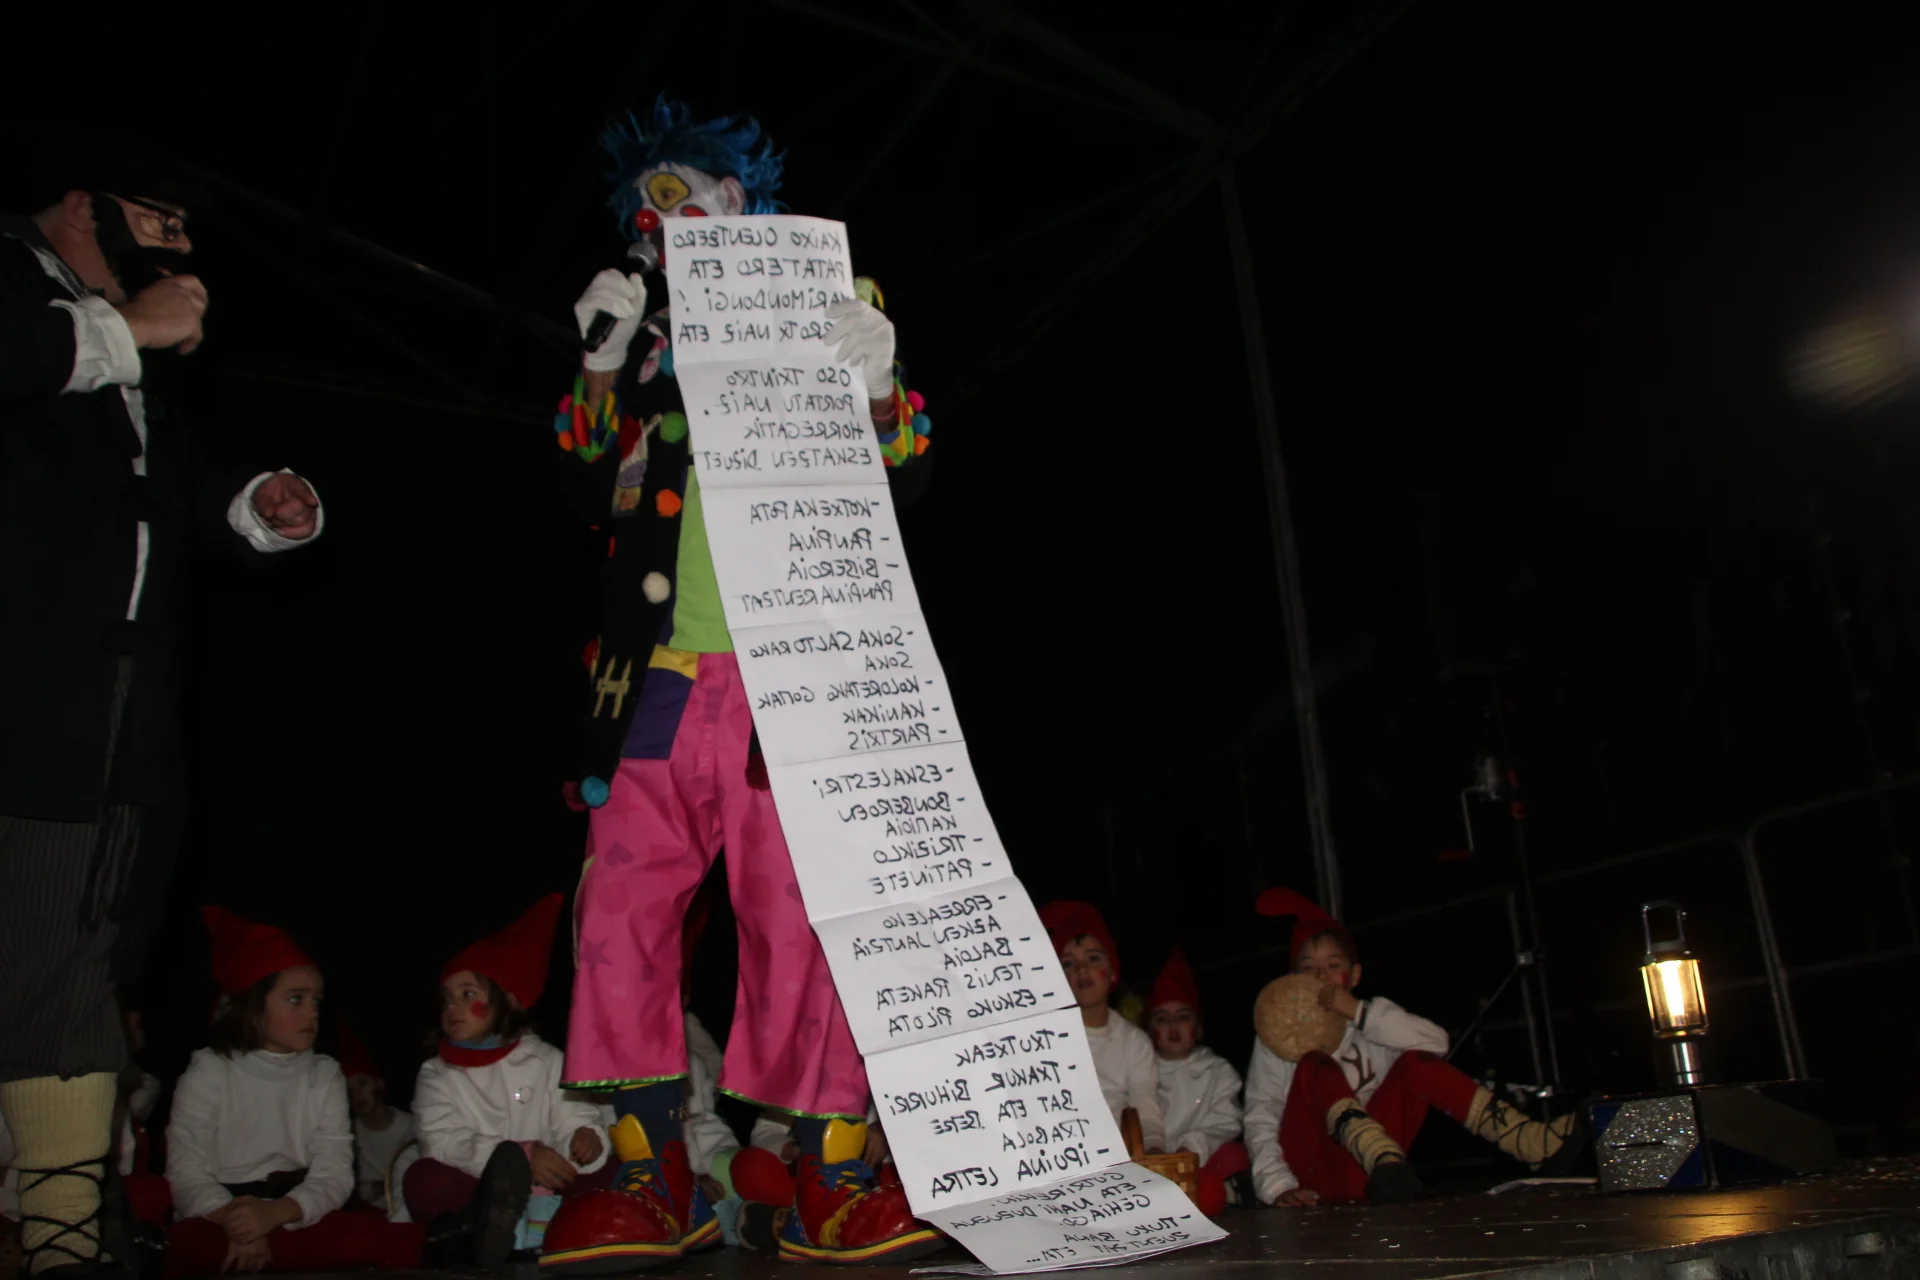 KAIXO OLENTZERO
PATATERO ETA
MARI MONDONGI!
ERROTX NAIZ ETA
OSO TXINTXO
PORTATU NAIZ.
HORREGATIK
ESKATZEN DIZUET
-KOTXEKAPOTA
- PANPINA
- BIBEROIA
PANPINARENTZAT
-SOKASALTORAKO
SOKA
- KOLORETAKO GOMAK
- KANIKAK
- PARTXIS
-ESKALESTRI
- BONBEROEN
KAMIOIA
- TRIZIKLO
- PATINETE
- ERREALEKO
AZKEN JANTZIA
- BALOIA
- TENIS RAKETA
- ESKUKO PILOTA
- TXUTXEAK
- TXAKUR BIHURRI
BAT ETA BERE
TXABOLA
- IPUINA LETRA
ETA NAHI DUZUENA
ZUENTZAT ETA...